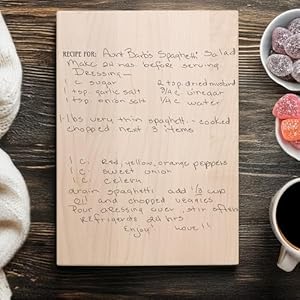 RECIPE FOR: Aunt Barb's Spaghetti Salad
Make 24 hrs. before serving
Dressing —
1 c sugar 2 tsp. dried mustard
1 tsp. garlic salt 3/4 c vinegar
1 tsp. onion salt 1/4 c water
1 lbs very thin spaghetti - cooked
chopped next 3 items
1 c. Red, yellow, orange peppers
1 c. sweet onion
1 c. celery
drain spaghetti add 1/3 cup
oil and chopped veggies
Pour dressing over, stir often
refrigerate 24 hrs
Enjoy! Love!!